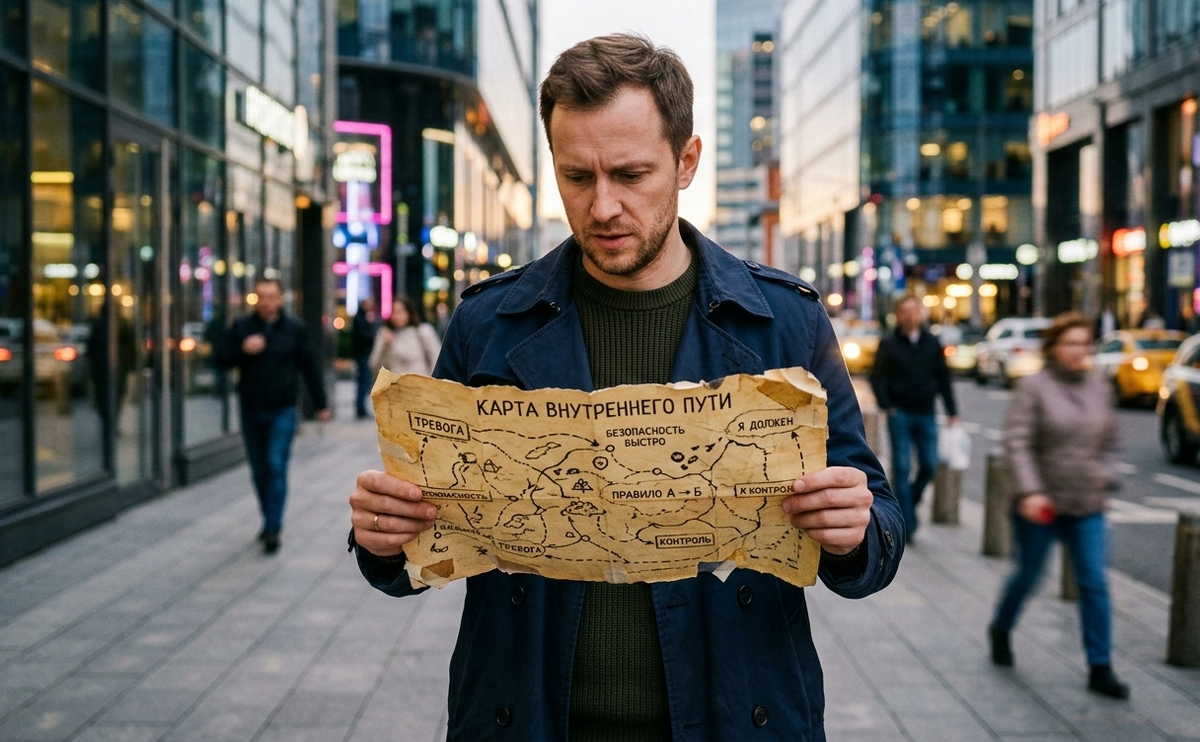 КАРТА ВНУТРЕННЕГО ПУТИ
ТРЕВОГА
БЕЗОПАСНОСТЬ
БЫСТРО
Я ДОЛЖЕН
ПРАВИЛО А → Б
К КОНТРОЛ
ТРЕВОГА
КОНТРОЛЬ